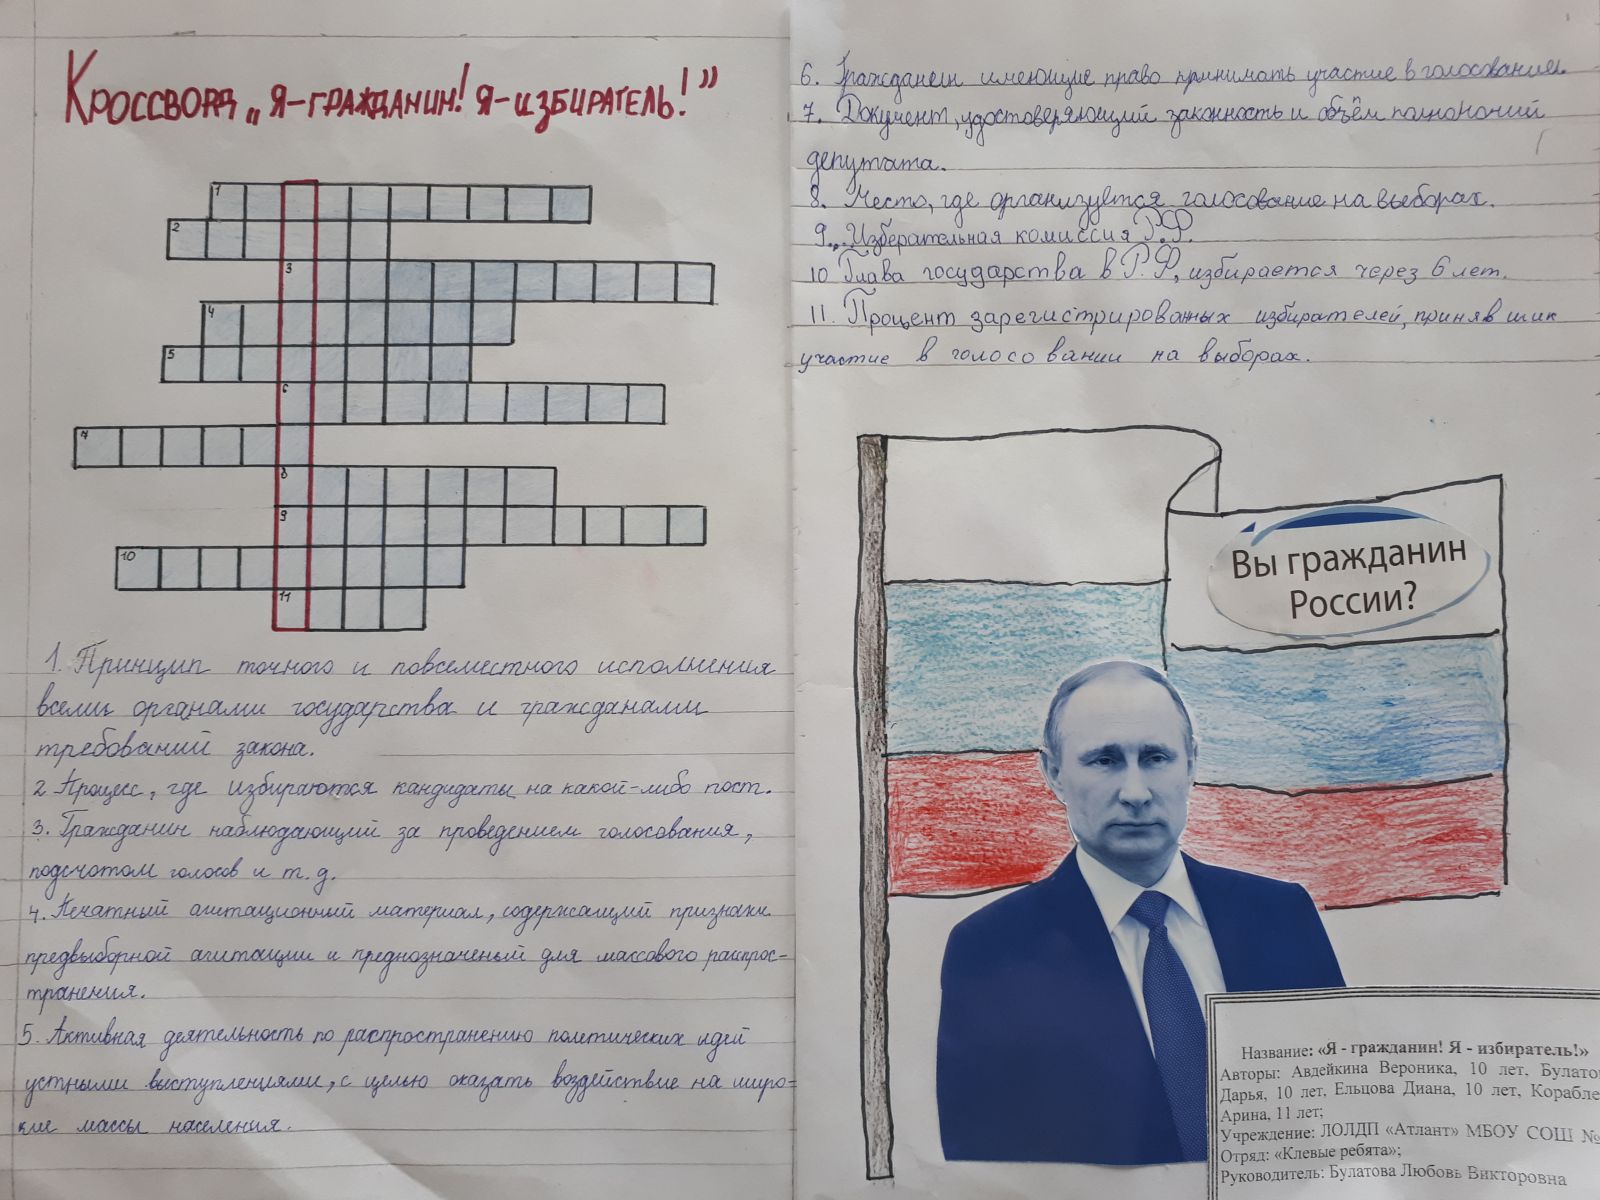 Кроссворд „Я-гражданин! Я-избиратель!”
1
2
3
4
5
6
7
8
9
10
11
1. Принцип точного и повсеместного исполнения
всеми органами государства и гражданами
требований закона.
2 Процесс, где избираются кандидаты на какой-либо пост.
3. Гражданин наблюдающий за проведением голосования,
подсчётом голосов и т.д.
4. Печатный агитационный материал, содержащий признаки
предвыборной агитации и предназначеный для массового распрос-
транения.
5. Активная деятельность по распространению политических идей
устными выступлениями, с целью оказать воздействие на широ-
кие массы населения.
6. Гражданин имеющие право принимать участие в голосовании.
7. Документ, удостоверяющий законность и объём полномочий
депутата.
8. Место, где организуется голосование на выборах.
9... Изберательная комиссия Р.Ф.
10 Глава государства в Р.Ф, избирается через 6 лет.
11. Процент зарегистрированных избирателей, принявших
участие в голосовании на выборах.
Вы гражданин
России?
Название: «Я - гражданин! Я - избиратель!»
Авторы: Авдейкина Вероника, 10 лет, Булато
Дарья, 10 лет, Ельцова Диана, 10 лет, Корабле
Арина, 11 лет;
Учреждение: ЛОЛДП «Атлант» МБОУ СОШ №
Отряд: «Клевые ребята»;
Руководитель: Булатова Любовь Викторовна